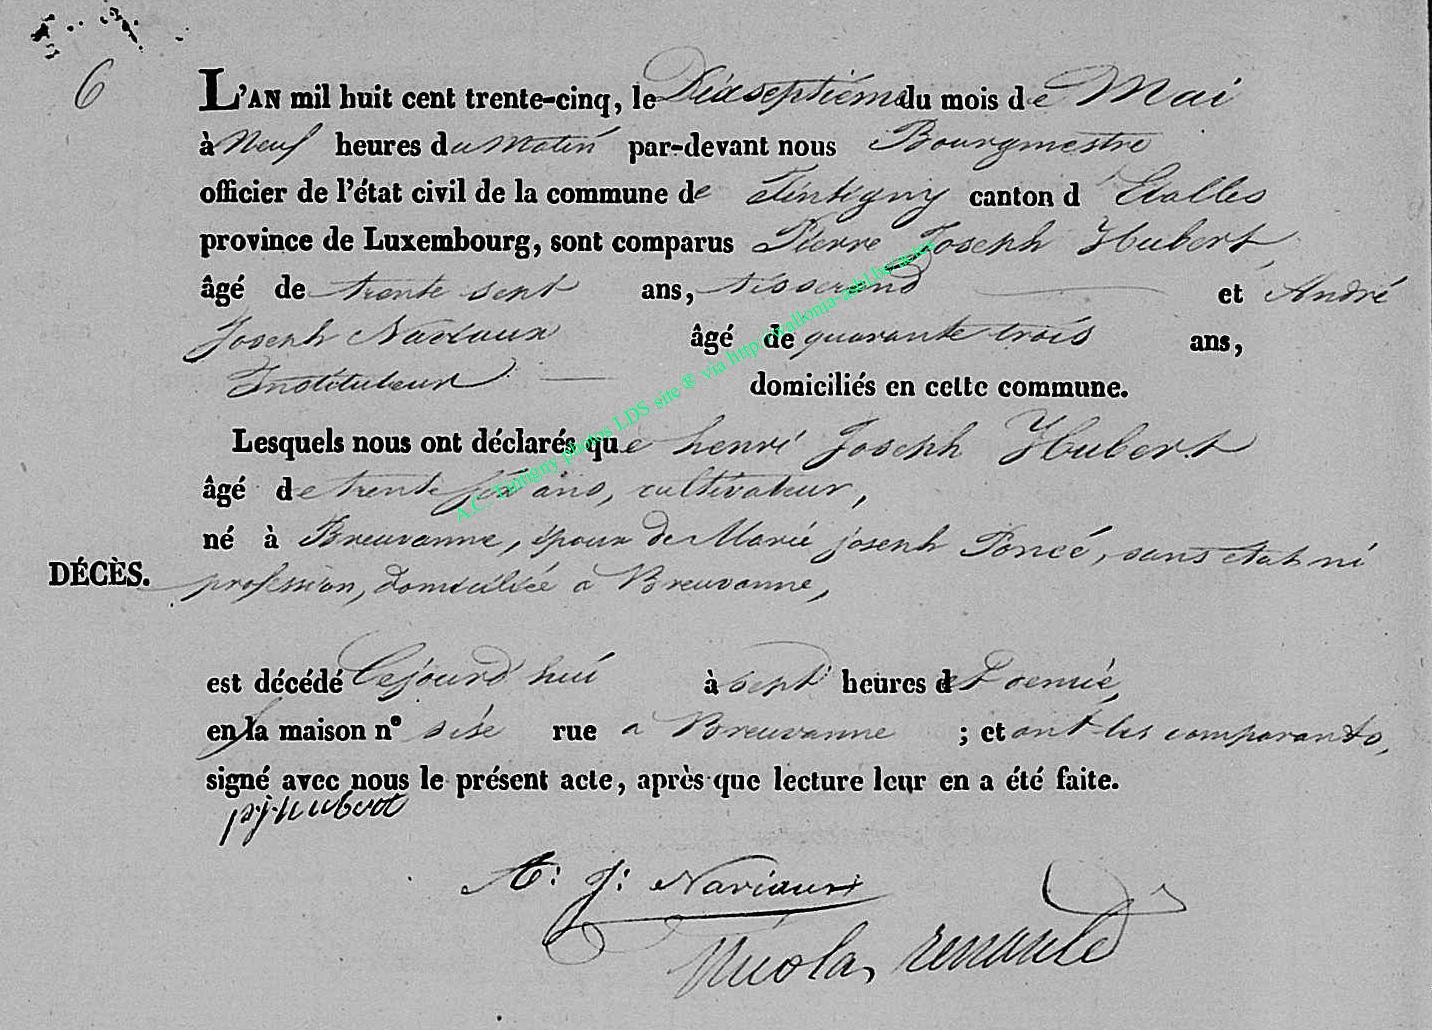 6
L'AN mil huit cent trente-cinq, le Dixseptième du mois de Mai
à Neuf heures du Matin par-devant nous Bourgmestre
officier de l'état civil de la commune de Tintigny canton d'Etalles
province de Luxembourg, sont comparus Pierre Joseph Hubert,
âgé de trente sept ans, tisserand et André
Joseph Naviaux âgé de quarante trois ans,
Instituteur domiciliés en cette commune.
Lesquels nous ont déclarés que henri Joseph Hubert
âgé de trente ans, cultivateur,
né à Breuvanne, époux de Marie joseph Poncé, sans etat ni
DÉCÈS. profession, domiciliée a Breuvanne,
est décédé Cejourd'hui à sept heures de
en la maison n° sise rue a Breuvanne ; et ont les comparants,
signé avec nous le présent acte, après que lecture leur en a été faite.
pj hubert
A: J: Naviaux
Nicolas renauld
A.C. Tintigny photos LDS site ® via http://wallonia-asbl.be/actes